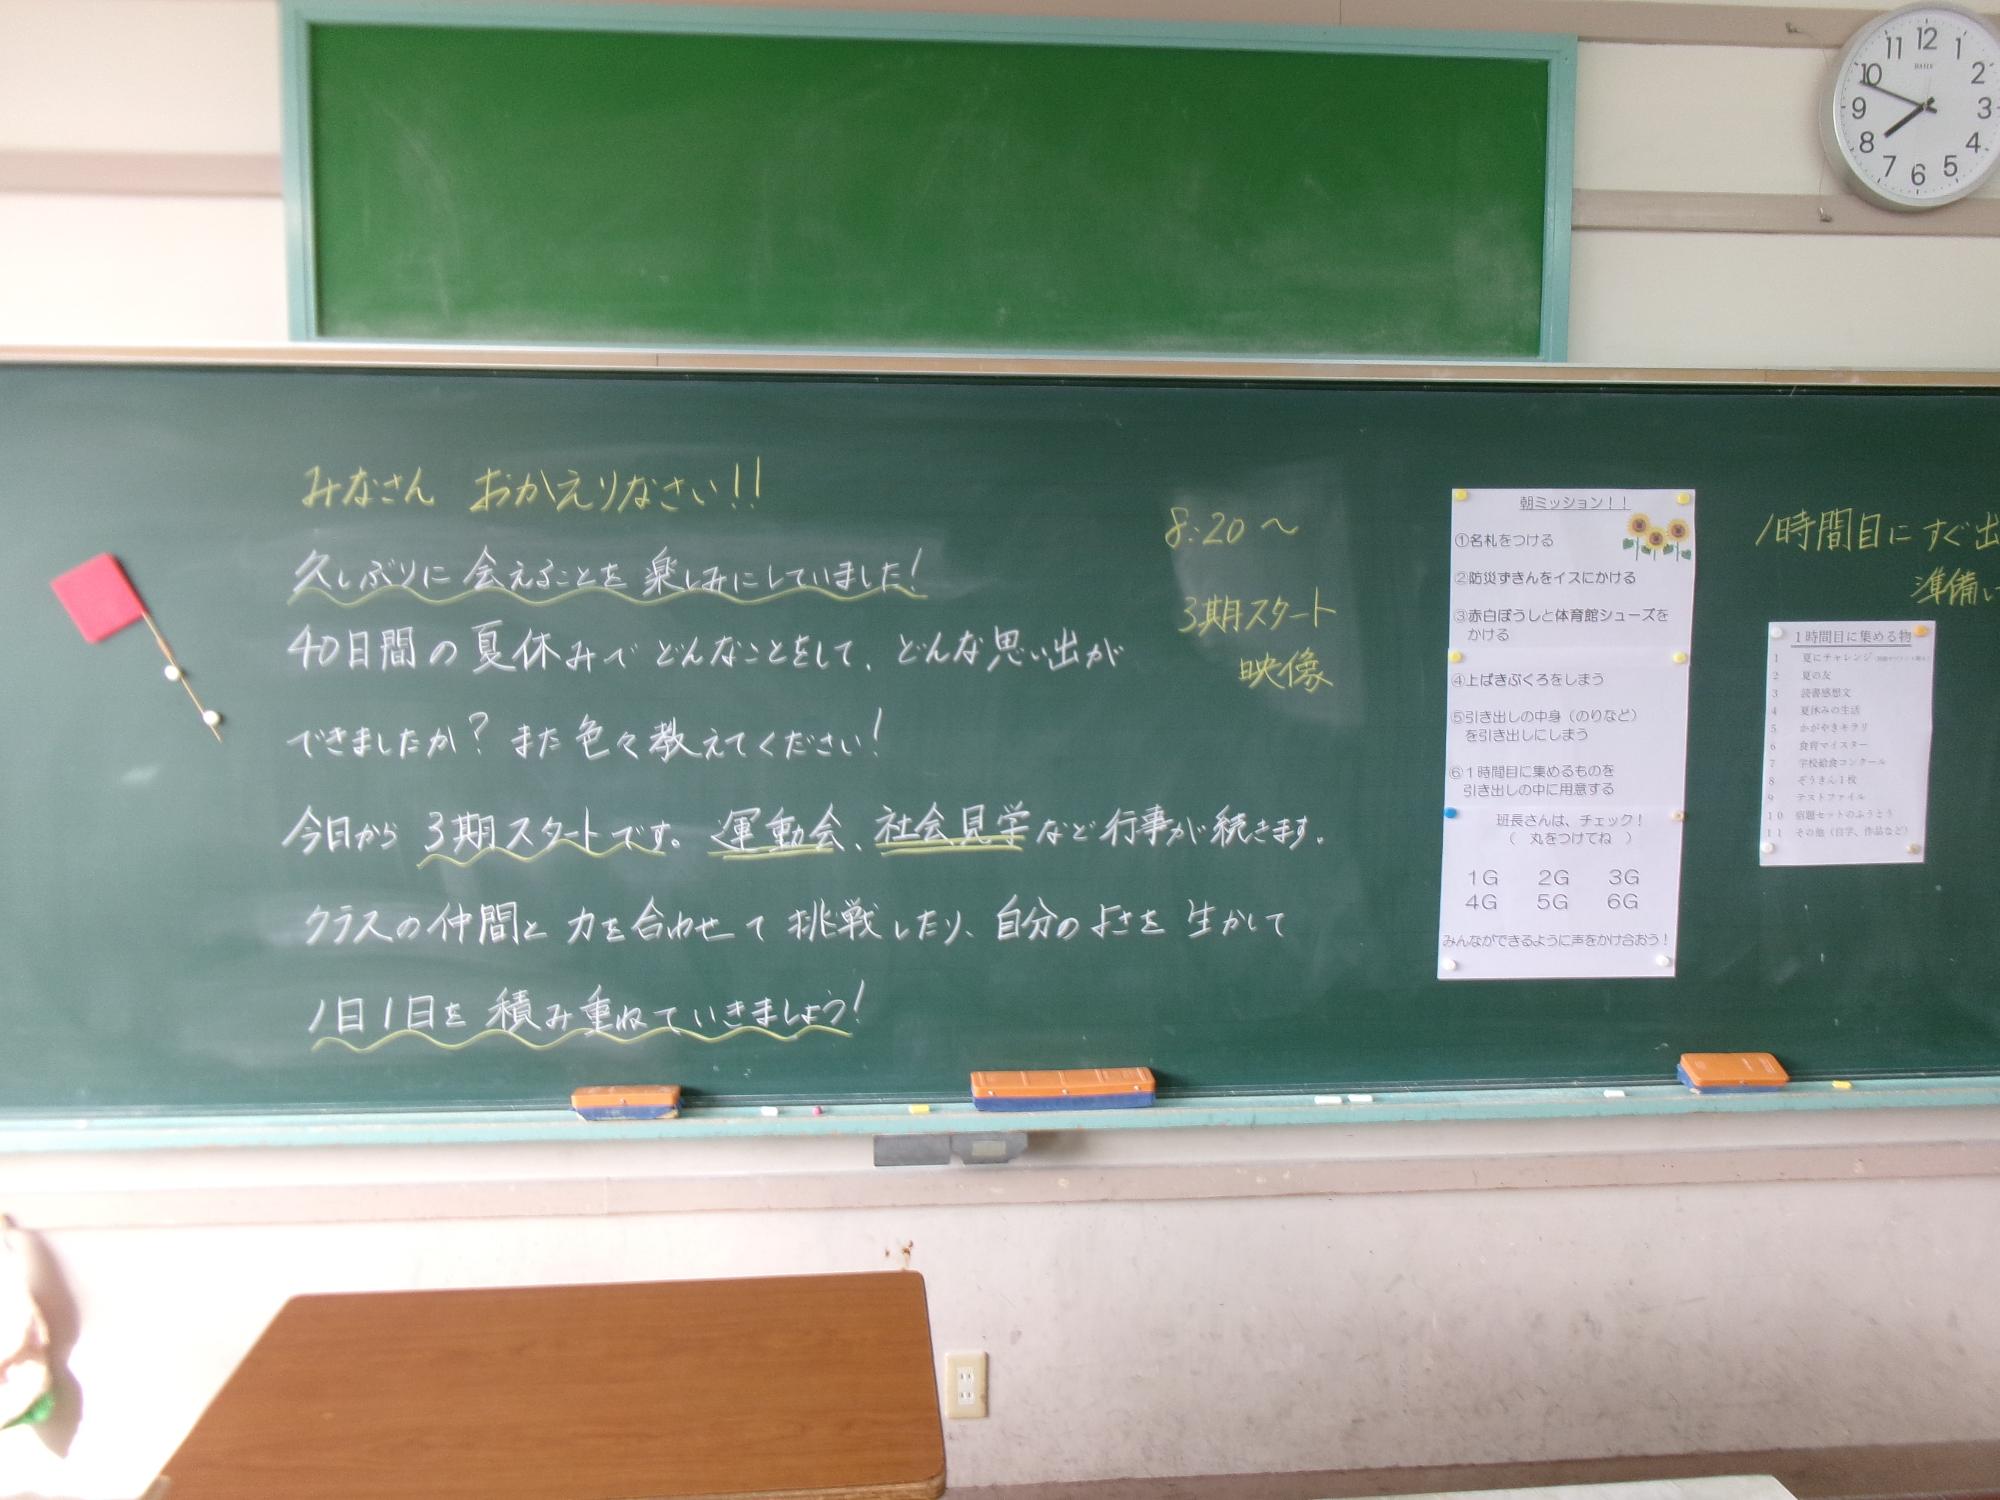 みなさん おかえりなさい!!
久しぶりに会えることを楽しみにしていました!
40日間の夏休みで どんなことをして、どんな思い出が
できましたか? また色々教えてください!
今日から 3期スタートです。運動会、社会見学など行事が続きます。
クラスの仲間と力を合わせて挑戦したり、自分のよさを 生かして
1日1日を積み重ねていきましょう!
8:20~
3期スタート
映像
朝ミッション!!
①名札をつける
②防災ずきんをイスにかける
③赤白ぼうしと体育館シューズを
かける
④上ばきぶくろをしまう
⑤引き出しの中身(のりなど)
を引き出しにしまう
⑥1時間目に集めるものを
引き出しの中に用意する
班長さんは、チェック!
( 丸をつけてね )
1G 2G 3G
4G 5G 6G
みんなができるように声をかけ合おう!
1時間目にすぐ出
準備い
1時間目に集める物
1 夏にチャレンジ
2 夏の友
3 読書感想文
4 夏休みの生活
5 かがやきキラリ
6 食育マイスター
7 学校給食コンクール
8 ぞうきん1枚
9 テストファイル
10 宿題セットのふうとう
11 その他(自学、作品など)
11 12 1
10 2
9 3
8 4
7 6 5